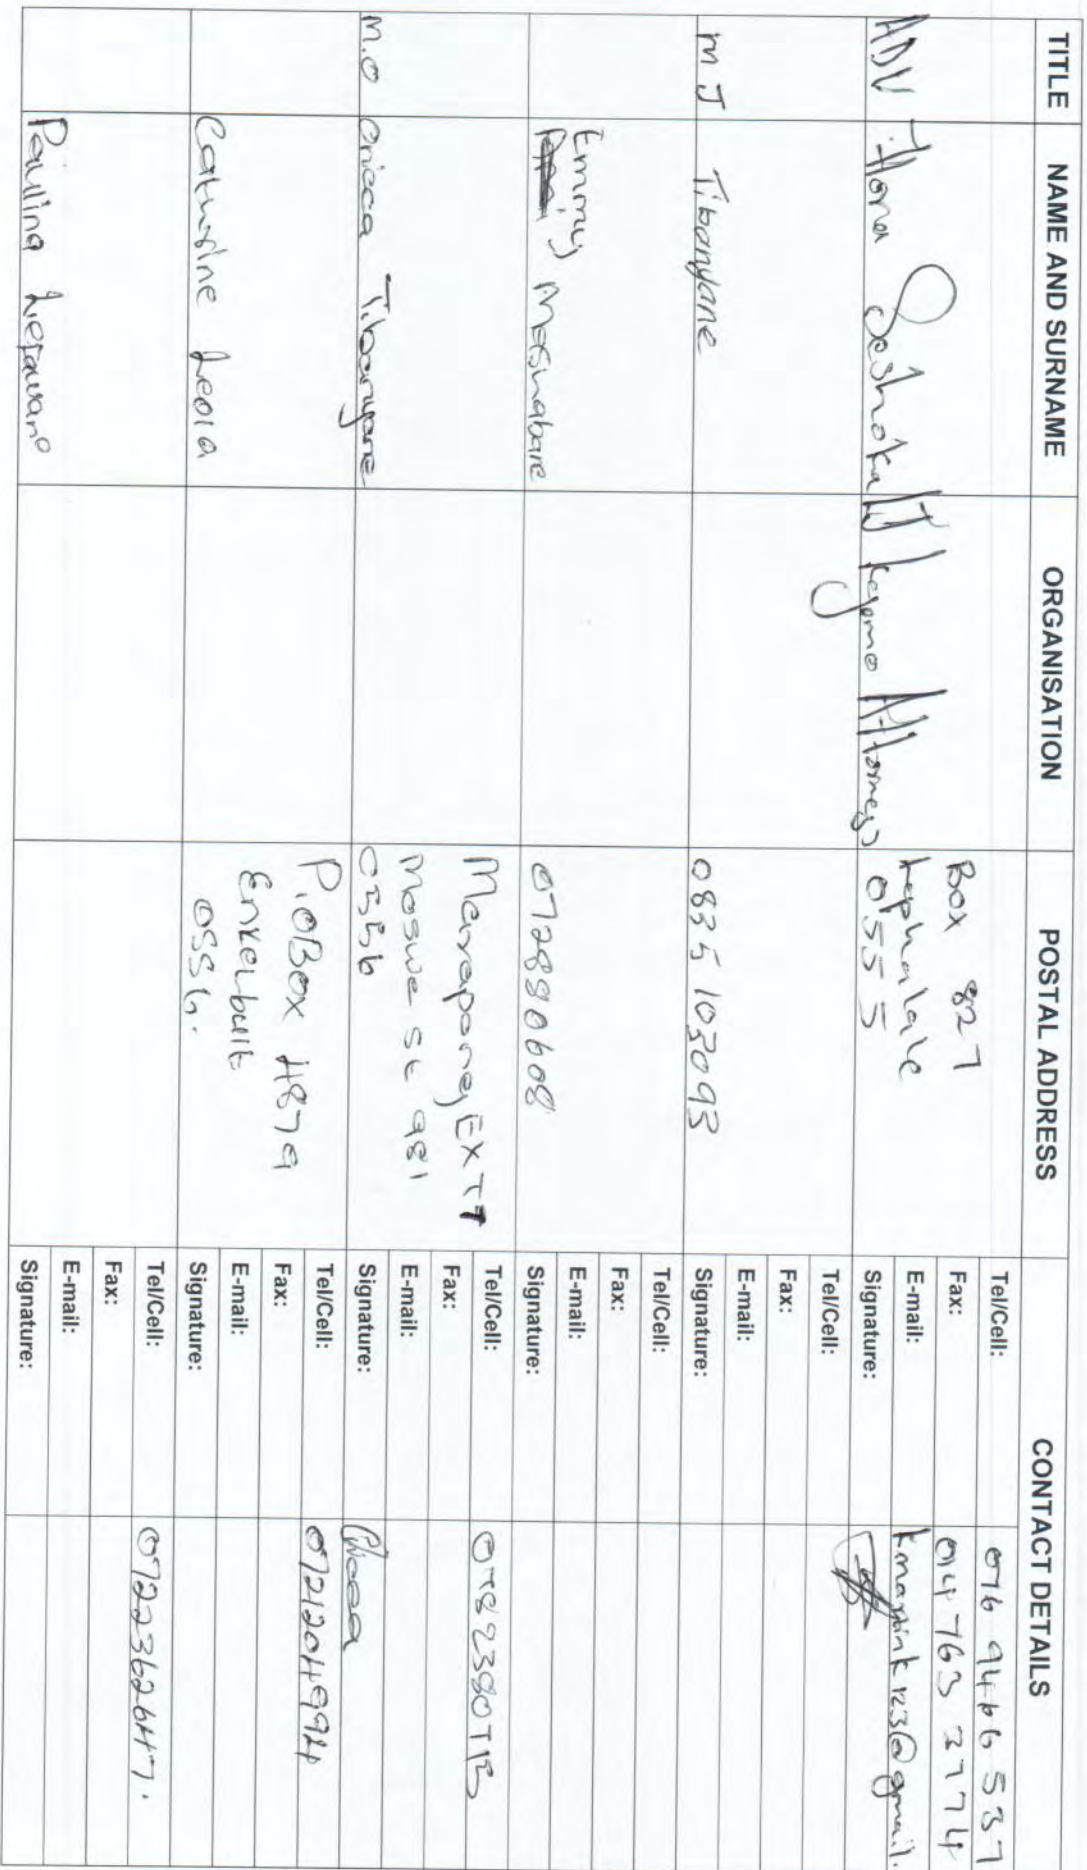 TITLE NAME AND SURNAME ORGANISATION POSTAL ADDRESS CONTACT DETAILS
ADV Seshoka Attorneys
Box 827
Lephalale
0555
Tel/Cell: 076 9466 537
Fax: 014 763 3774
E-mail:
Signature:
M J Tibanyane
0835103093
Tel/Cell:
Fax:
E-mail:
Signature:
Emmy Mashabane
0728890608
Tel/Cell:
Fax:
E-mail:
Signature:
M.O Onicca Tibanyane
Marapong EXT
Moswe St 981
0556
Tel/Cell:
Fax:
E-mail:
Signature: Onicca
Caturine Leola
P.O Box 4879
Enkelbult
0556.
Tel/Cell: 0721204994
Fax:
E-mail:
Signature:
Paulina
Tel/Cell: 0722362647.
Fax:
E-mail:
Signature: